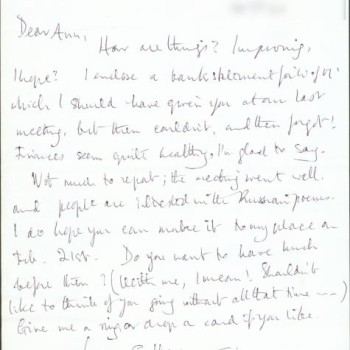 Dear Ann,
How are things? Improving,
I hope? I enclose a bank statement
which I should have given you at our last
meeting, but then couldn't, and then forgot!
Finances seem quite healthy, I'm glad to say.
Not much to report; the meeting went well
and people are interested in the Russian poems.
I do hope you can make it to my place on
Feb. 21st. Do you want to have lunch
before then? (With me, I mean! Shouldn't
like to think of you going without all that time ---)
Give me a ring or drop a card if you like.